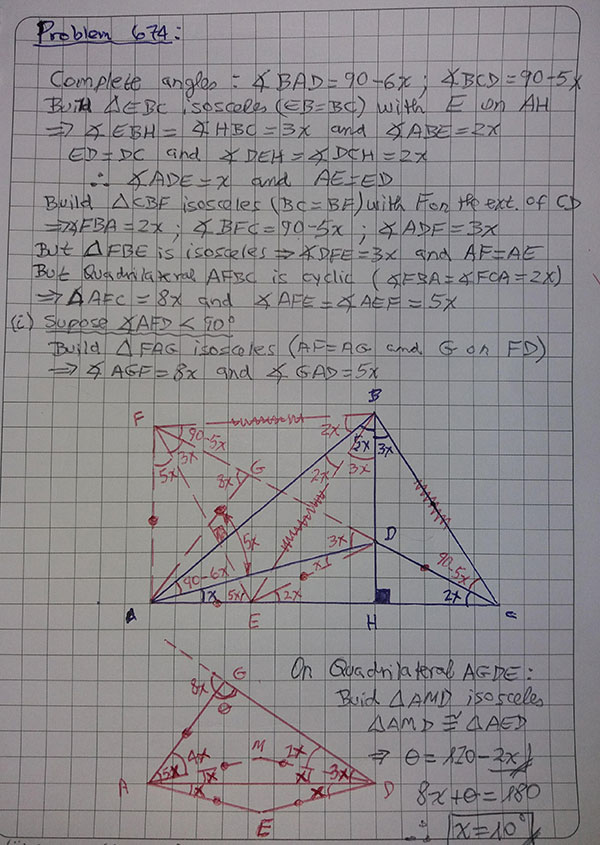 Problem 674:
Complete angles: ∢BAD=90-6x; ∢BCD=90-5x
Build ΔEBC isosceles (EB=BC) with E on AH
⟹ ∢EBH = ∢HBC=3x and ∢ABE=2x
ED=DC and ∢DEH=∢DCH=2x
∴ ∢ADE=x and AE=ED
Build ΔCBF isosceles (BC=BF) with F on the ext. of CD
⟹ ∢FBA=2x; ∢BFC=90-5x; ∢ADF=3x
But ΔFBE is isosceles ⟹ ∢DFE=3x and AF=AE
But Quadrilateral AFBC is cyclic (∢FBA=∢FCA=2x)
⟹ ∢AFC=8x and ∢AFE=∢AEF=5x
(i) Supose ∢AFD<90°
Build ΔFAG isosceles (AF=AG and G on FD)
⟹ ∢AGF=8x and ∢GAD=5x
B
F
2x
5x
3x
90-5x
3x
5x
G
8x
2x
3x
5x
3x
D
x
90-5x
90-6x
x
5x
2x
2x
A
E
H
C
On Quadrilateral AGDE:
Buid ΔAMD isosceles
ΔAMD≅ΔAED
⟹ θ=120-2x
8x+θ=180
∴ x=10°
G
8x
θ
4x
M
2x
5x
x
x
3x
A
x
x
D
E